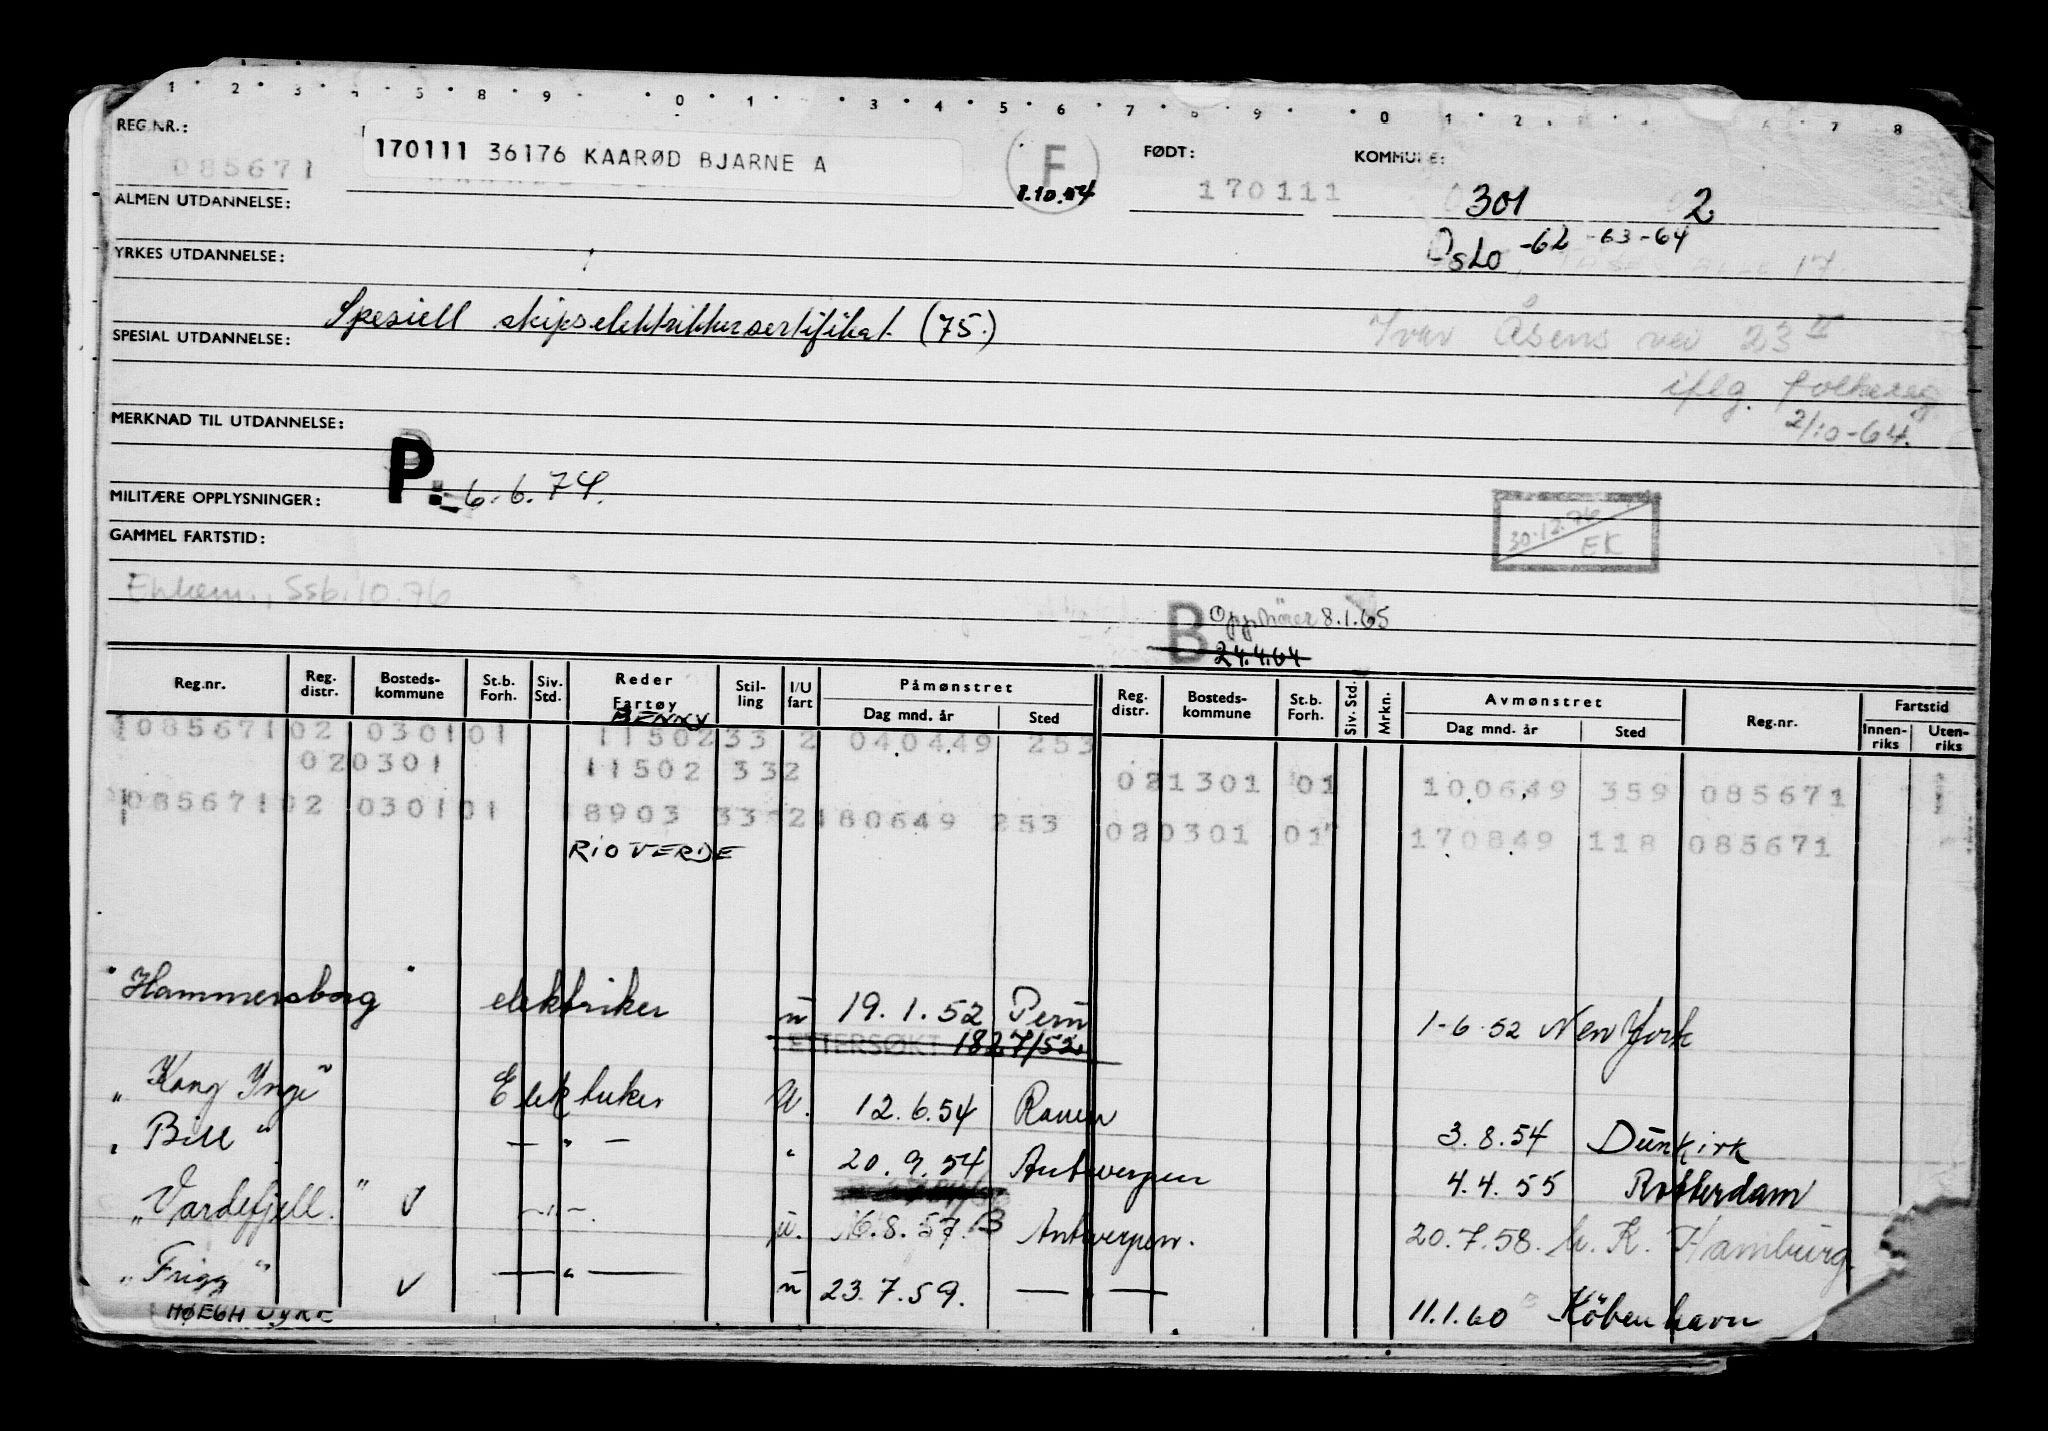 REG.NR.: 085671 170111 36176 KAARØD BJARNE A F 1.10.54 FØDT: 170111 KOMMUNE: 301 2
ALMEN UTDANNELSE: Oslo -62 -63-64
YRKES UTDANNELSE:
Spesiell skipselektrikersertifikat (75.)
Ivar Åsens vei 23 II
SPESIAL UTDANNELSE:
iflg. folkereg.
2/10-64.
MERKNAD TIL UTDANNELSE:
P: 6.6.74.
MILITÆRE OPPLYSNINGER:
30.12.76
EK
GAMMEL FARTSTID:
Ssb. 10.76
B 8.1.65
24.4.64
Reg.nr. Reg. distr. Bosteds-kommune St.b. Forh. Siv. Std. Reder Fartøy Stil-ling I/U fart Påmønstret Dag mnd. år Sted Reg. distr. Bosteds-kommune St.b. Forh. Siv. Std. Mrkn. Avmønstret Dag mnd. år Sted Reg.nr. Fartstid Innen-riks Uten-riks
BENNY
085671 02 0301 01 11502 33 2 040449 253
020301 11502 332 021301 01 100649 359 085671
085671 02 0301 01 8903 33 2 180649 253 020301 01 170849 118 085671
RIO VERDE
"Hammersborg" elektriker u 19.1.52 Peru 1-6.52 New York
ETTERSØKT 18 7/52
"Kong Inge" Elektriker U. 12.6.54 Rouen 3.8.54 Dunkirk
"Bill" — " — " 20.9.54 Antwerpen 4.4.55 Rotterdam
"Vardefjell." V — " —. u. 16.8.57. B Antwerpen. 20.7.58. h. K. Hamburg.
"Frigg" V — " — u 23.7.59. — " — 11.1.60 København
HØEGH